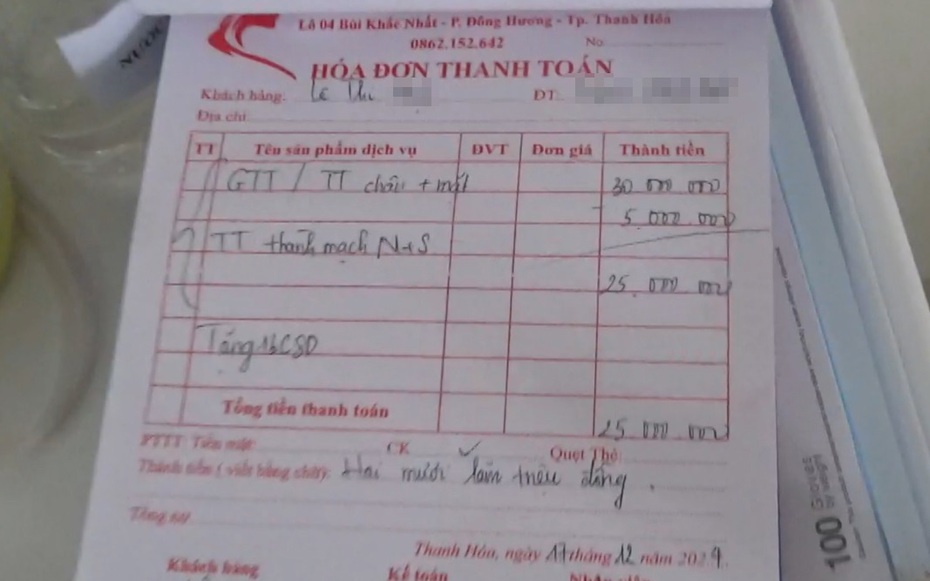 Lô 04 Bùi Khắc Nhất - P. Đông Hương - Tp. Thanh Hóa
0862.152.642 No
HÓA ĐƠN THANH TOÁN
Khách hàng: Lê Thị ĐT:
Địa chỉ:
TT Tên sản phẩm dịch vụ ĐVT Đơn giá Thành tiền
GTT / TT chân + mắt 30 000 000
- 5.000.000
TT thanh mạch N+S
25.000.000
Tặng
Tổng tiền thanh toán
25 000 000
PTTT: Tiền mặt: CK ✓ Quẹt Thẻ:
Thành tiền ( viết bằng chữ): Hai mươi lăm triệu đồng.
Thanh Hóa, ngày 17 tháng 12 năm 2024.
Khách hàng Kế toán Nhân viên
NƯỚC
100